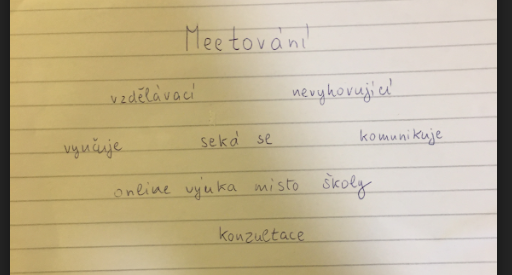 Meetování
vzdělávací nevyhovující
vyučuje seká se komunikuje
online výuka místo školy
konzultace